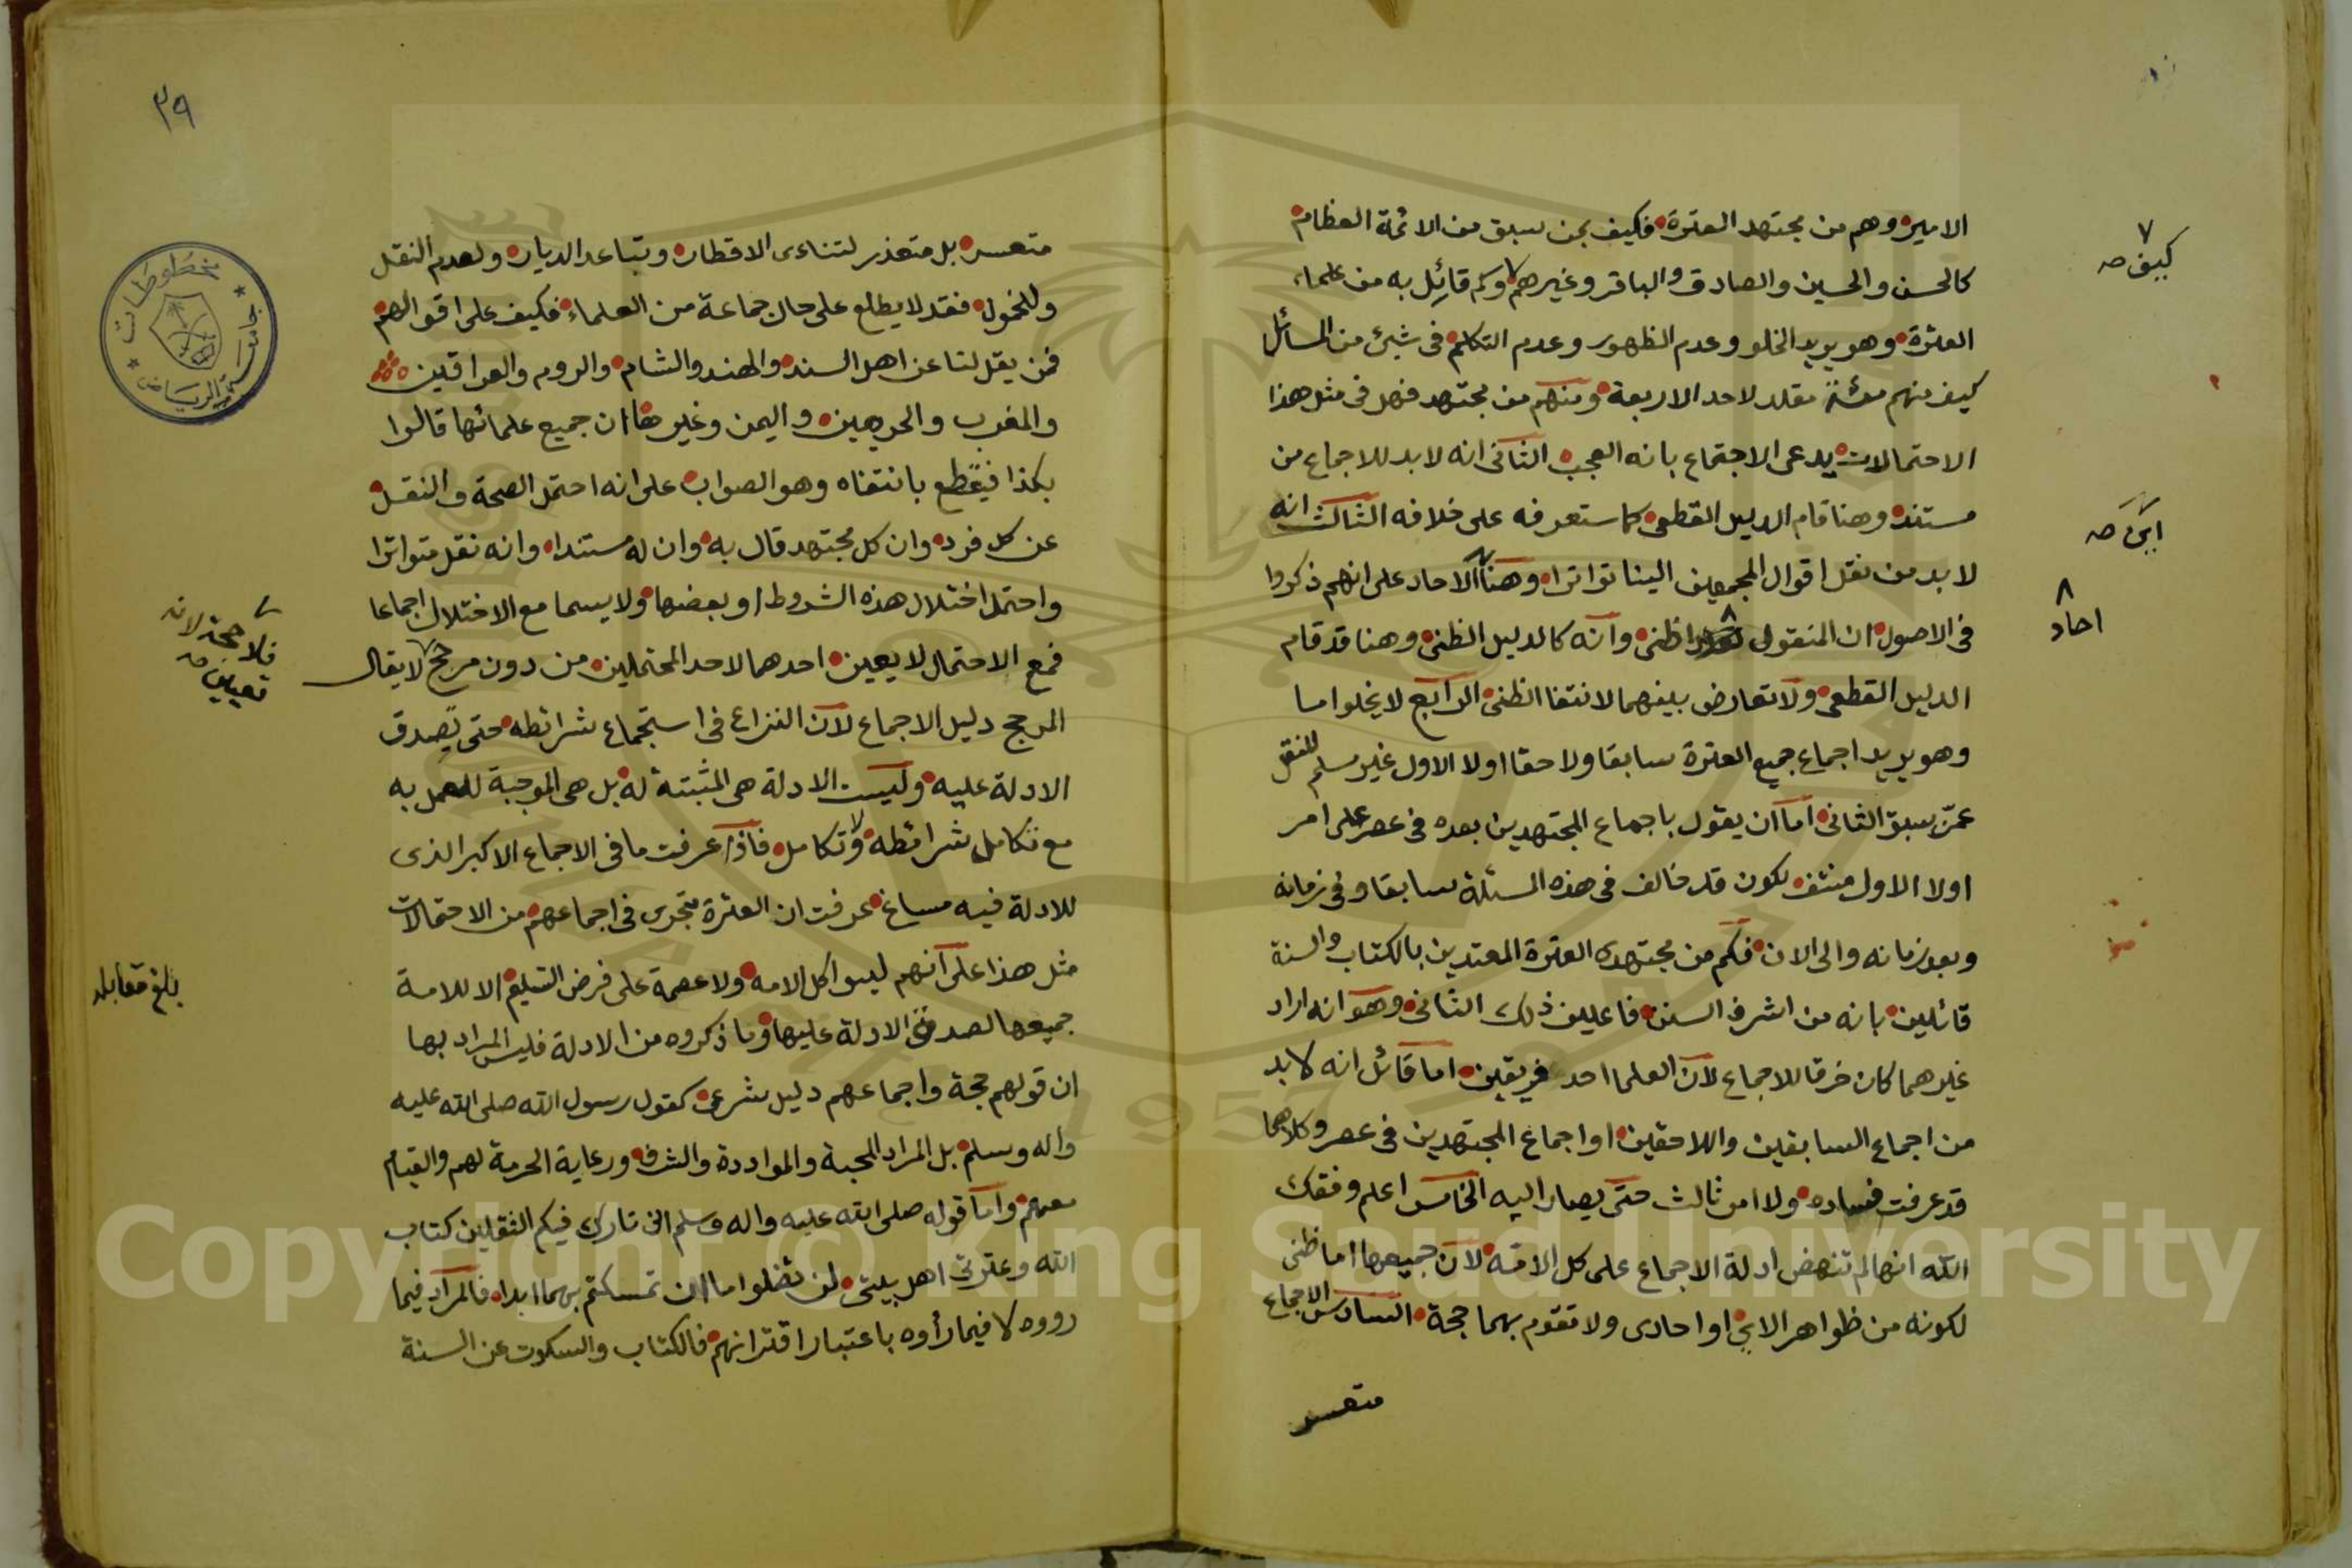 الامير وهم من مجتهد العترة فكيف بمن سبق من الائمة العظام
كالحسن والحسين والصادق والباقر وغيرهم وكم قائل به من علماء
العترة وهو يريد الخلو وعدم الظهور وعدم التكلم فى شيئ من المسائل
كيف منهم مقلد لاحد الاربعة ومنهم من مجتهد فهل فى مثل هذا
الاحتمالات يدعى الاجتماع بانه العجب الثانى انه لا بد للاجماع من
مستند وهنا قام الدليل القطعى كما ستعرفه على خلافه الثالث انه
لا بد من نقل اقوال المجمعين الينا تواترا وهنا الاحاد على انهم ذكروا
فى الاصول ان المنقول ظنى وانه كالدليل الظنى وهنا قد قام
الدليل القطعى ولا تعارض بينهما لانتفا الظنى الرابع لا يخلوا ما
وهو يريد اجماع جميع العترة سابقا ولا حقا اولا الاول غير مسلم للنقل
عمن سبق الثانى اما ان يقول باجماع المجتهدين بعده فى عصر على امر
اولا الاول منتف لكون قد خالف فى هذه المسئلة سابقا وفى زمانه
وبعد زمانه والى الان فكم من مجتهدى العترة المعتدين بالكتاب والسنة
قائلين بانه من اشرف السنن فاعلين ذلك الثانى وهو انه اراد
غيرهما كان خرقا للاجماع لان العلما احد فريقين اما قائل انه لا بد
من اجماع السابقين واللاحقين او اجماع المجتهدين فى عصر وكلاهما
قد عرفت فساده ولا امر ثالث حتى يصار اليه الخامس اعلم وفقك
الله انها لم تنهض ادلة الاجماع على كل الامة لان جميعها اما ظنى
لكونه من ظواهر الاي او احادى ولا تقوم بهما حجة السادس الاجماع
متعسر
كيف صح
اى صح
احاد
٣٩
متعسر بل متعذر لتناءى الاقطار وتباعد الديار ولعدم النقل
وللخمول فقد لا يطلع على حال جماعة من العلماء فكيف على اقوالهم
فمن يقل لنا عن اهل السند والهند والشام والروم والعراقين
والمغرب والحرمين واليمن وغيرها ان جميع علمائها قالوا
بكذا فيقطع بانتفاه وهو الصواب على انه احتمل الصحة والنقل
عن كل فرد وان كل مجتهد قال به وان له مستندا وانه نقل متواترا
واحتمل اختلال هذه الشروط او بعضها ولا يسما مع الاختلال اجماعا
فمع الاحتمال لا يعين احدهما لاحد المحتملين من دون مرجح لا يقال
المرجح دليل الاجماع لان النزاع فى استجماع شرائطه حتى يصدق
الادلة عليه وليست الادلة هى المثبتة له بل هى الموجبة للعمل به
مع تكامل شرائطه ولا تكامل فاذا عرفت ما فى الاجماع الاكبر الذى
للادلة فيه مساغ عرفت ان العترة يتجرى فى اجماعهم من الاحتمالات
مثل هذا على انهم ليسوا كل الامه ولا عصمة على فرض التسليم الا للامة
جميعها لصدق الادلة عليها وما ذكروه من الادلة فليس المراد بها
ان قولهم حجة واجماعهم دليل شرعى كقول رسول الله صلى الله عليه
واله وسلم بل المراد المحبة والمواددة والشرف ورعاية الحرمة لهم والقيام
معهم واما قوله صلى الله عليه واله وسلم انى تارك فيكم الثقلين كتاب
الله وعترتى اهل بيتى لن تضلوا ما ان تمسكتم بهما ابدا فالمراد فيما
رووه لا فيما رأوه باعتبار اقترانهم فالكتاب والسكوت عن السنة
فلا حجة لانه
تعيين صح
بلغ مقابلة
جامعة الرياض
مخطوطات
Copyright © King Saud University
1957